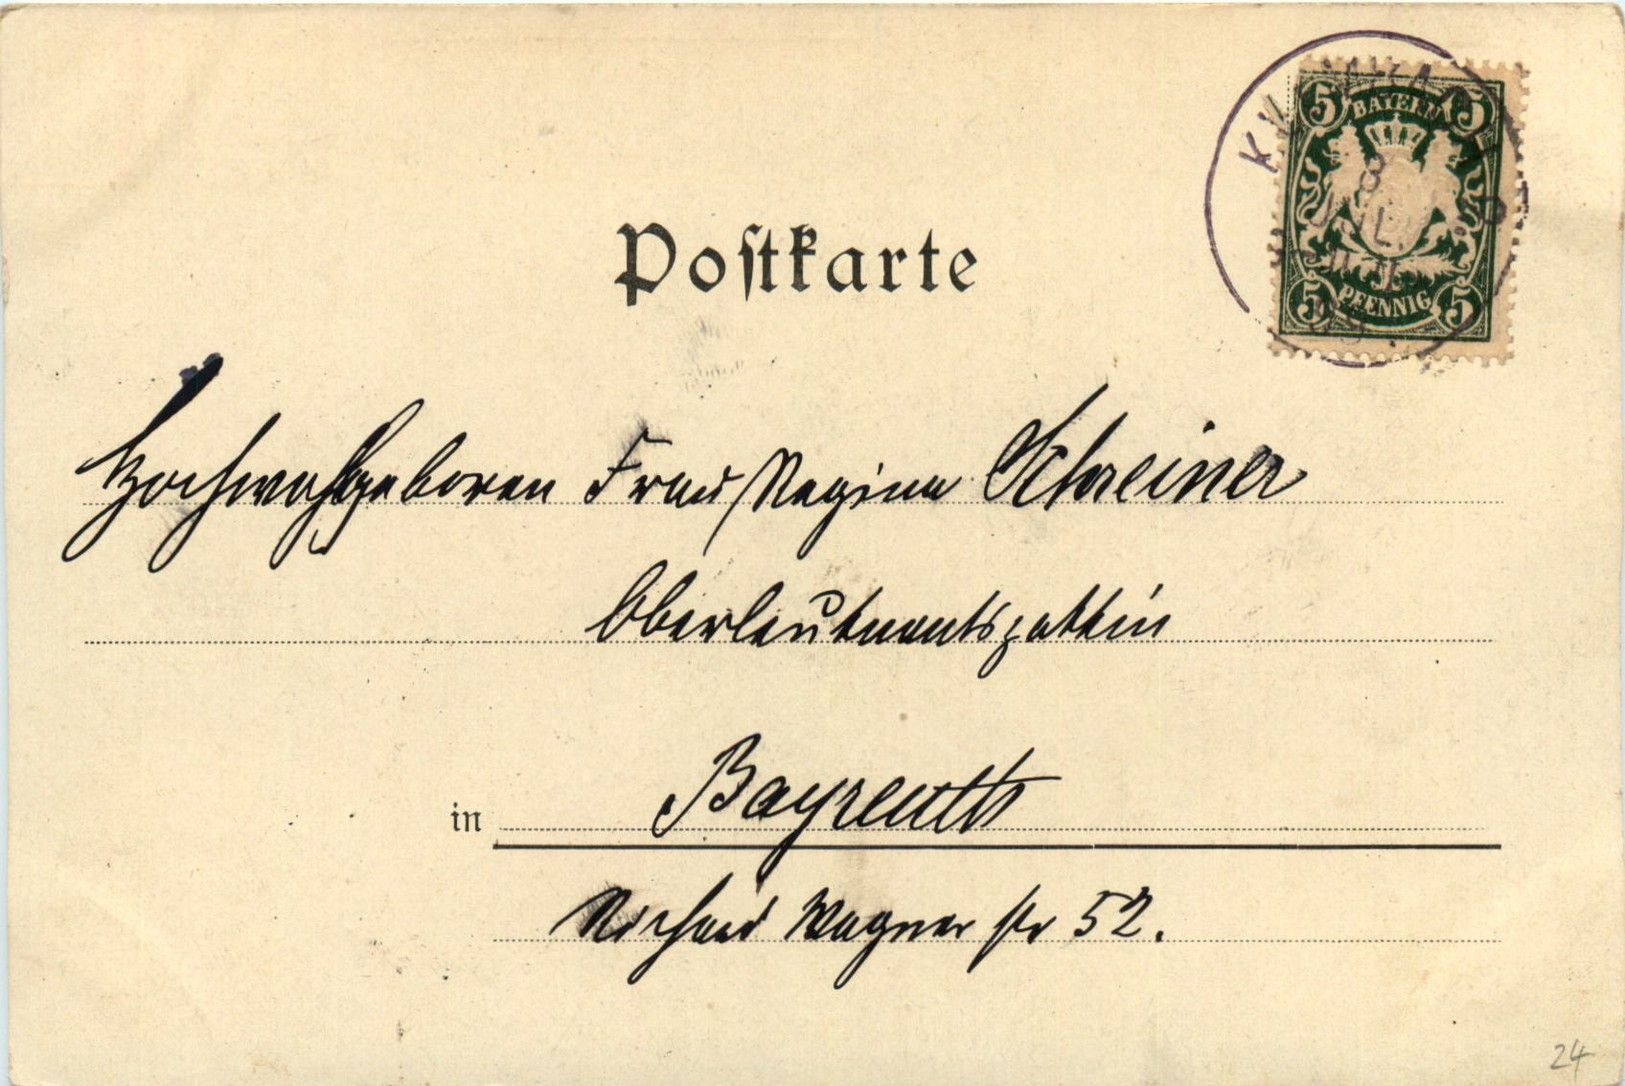 5 BAYERN 5
8
JUL.
5 PFENNIG 5
99
Postkarte
Hochwohlgeboren Frau Regina Schreiner
Oberleutnantsgattin
in Bayreuth
Richard Wagner str 52.
24